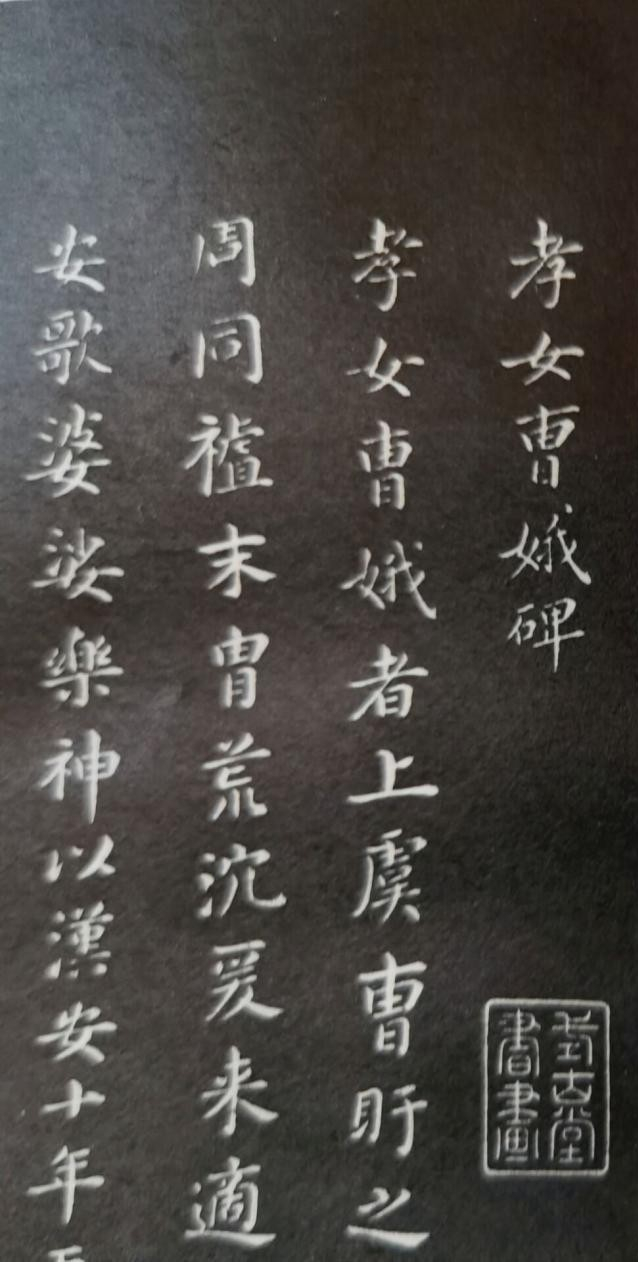 孝女曹娥碑
式古堂
書畫
孝女曹娥者上虞曹盱之
周同祖末胄荒沈爰来適
安歌婆娑樂神以漢安十年